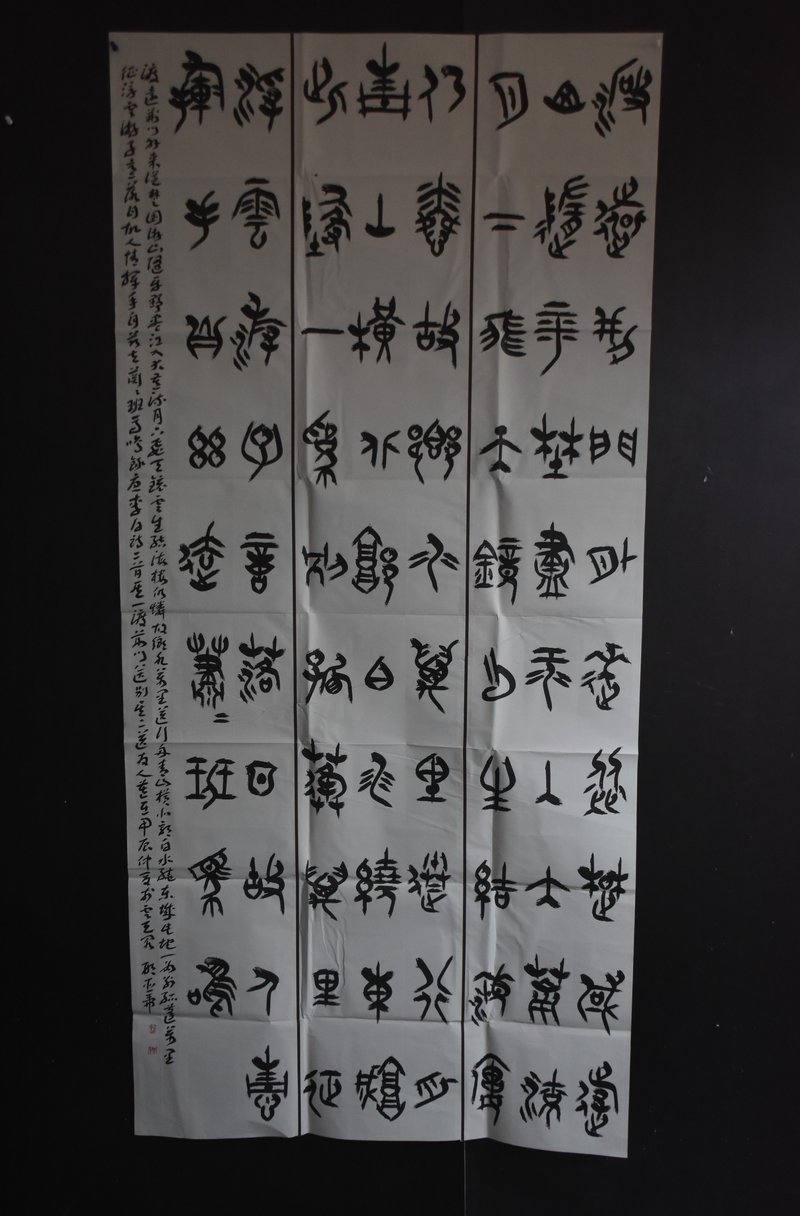 渡遠荊門外來從楚國遊
山隨平野盡江入大荒流
月下飛天鏡雲生結海樓
仍憐故鄉水萬里送行舟
青山橫北郭白水繞東城
此地一為別孤蓬萬里征
浮雲游子意落日故人情
揮手自茲去蕭〻班馬鳴
渡遠荊門外來從楚國游山隨平野盡江入大荒流月下飛天鏡雲生結海樓仍憐故鄉水萬里送行舟青山橫北郭白水繞東城此地一為別孤蓬萬里
征浮雲游子意落日故人情揮手自茲去蕭〻班馬鳴錄唐李白詩二首其一渡荊門送別其二送友人歲在甲辰仲夏於雲